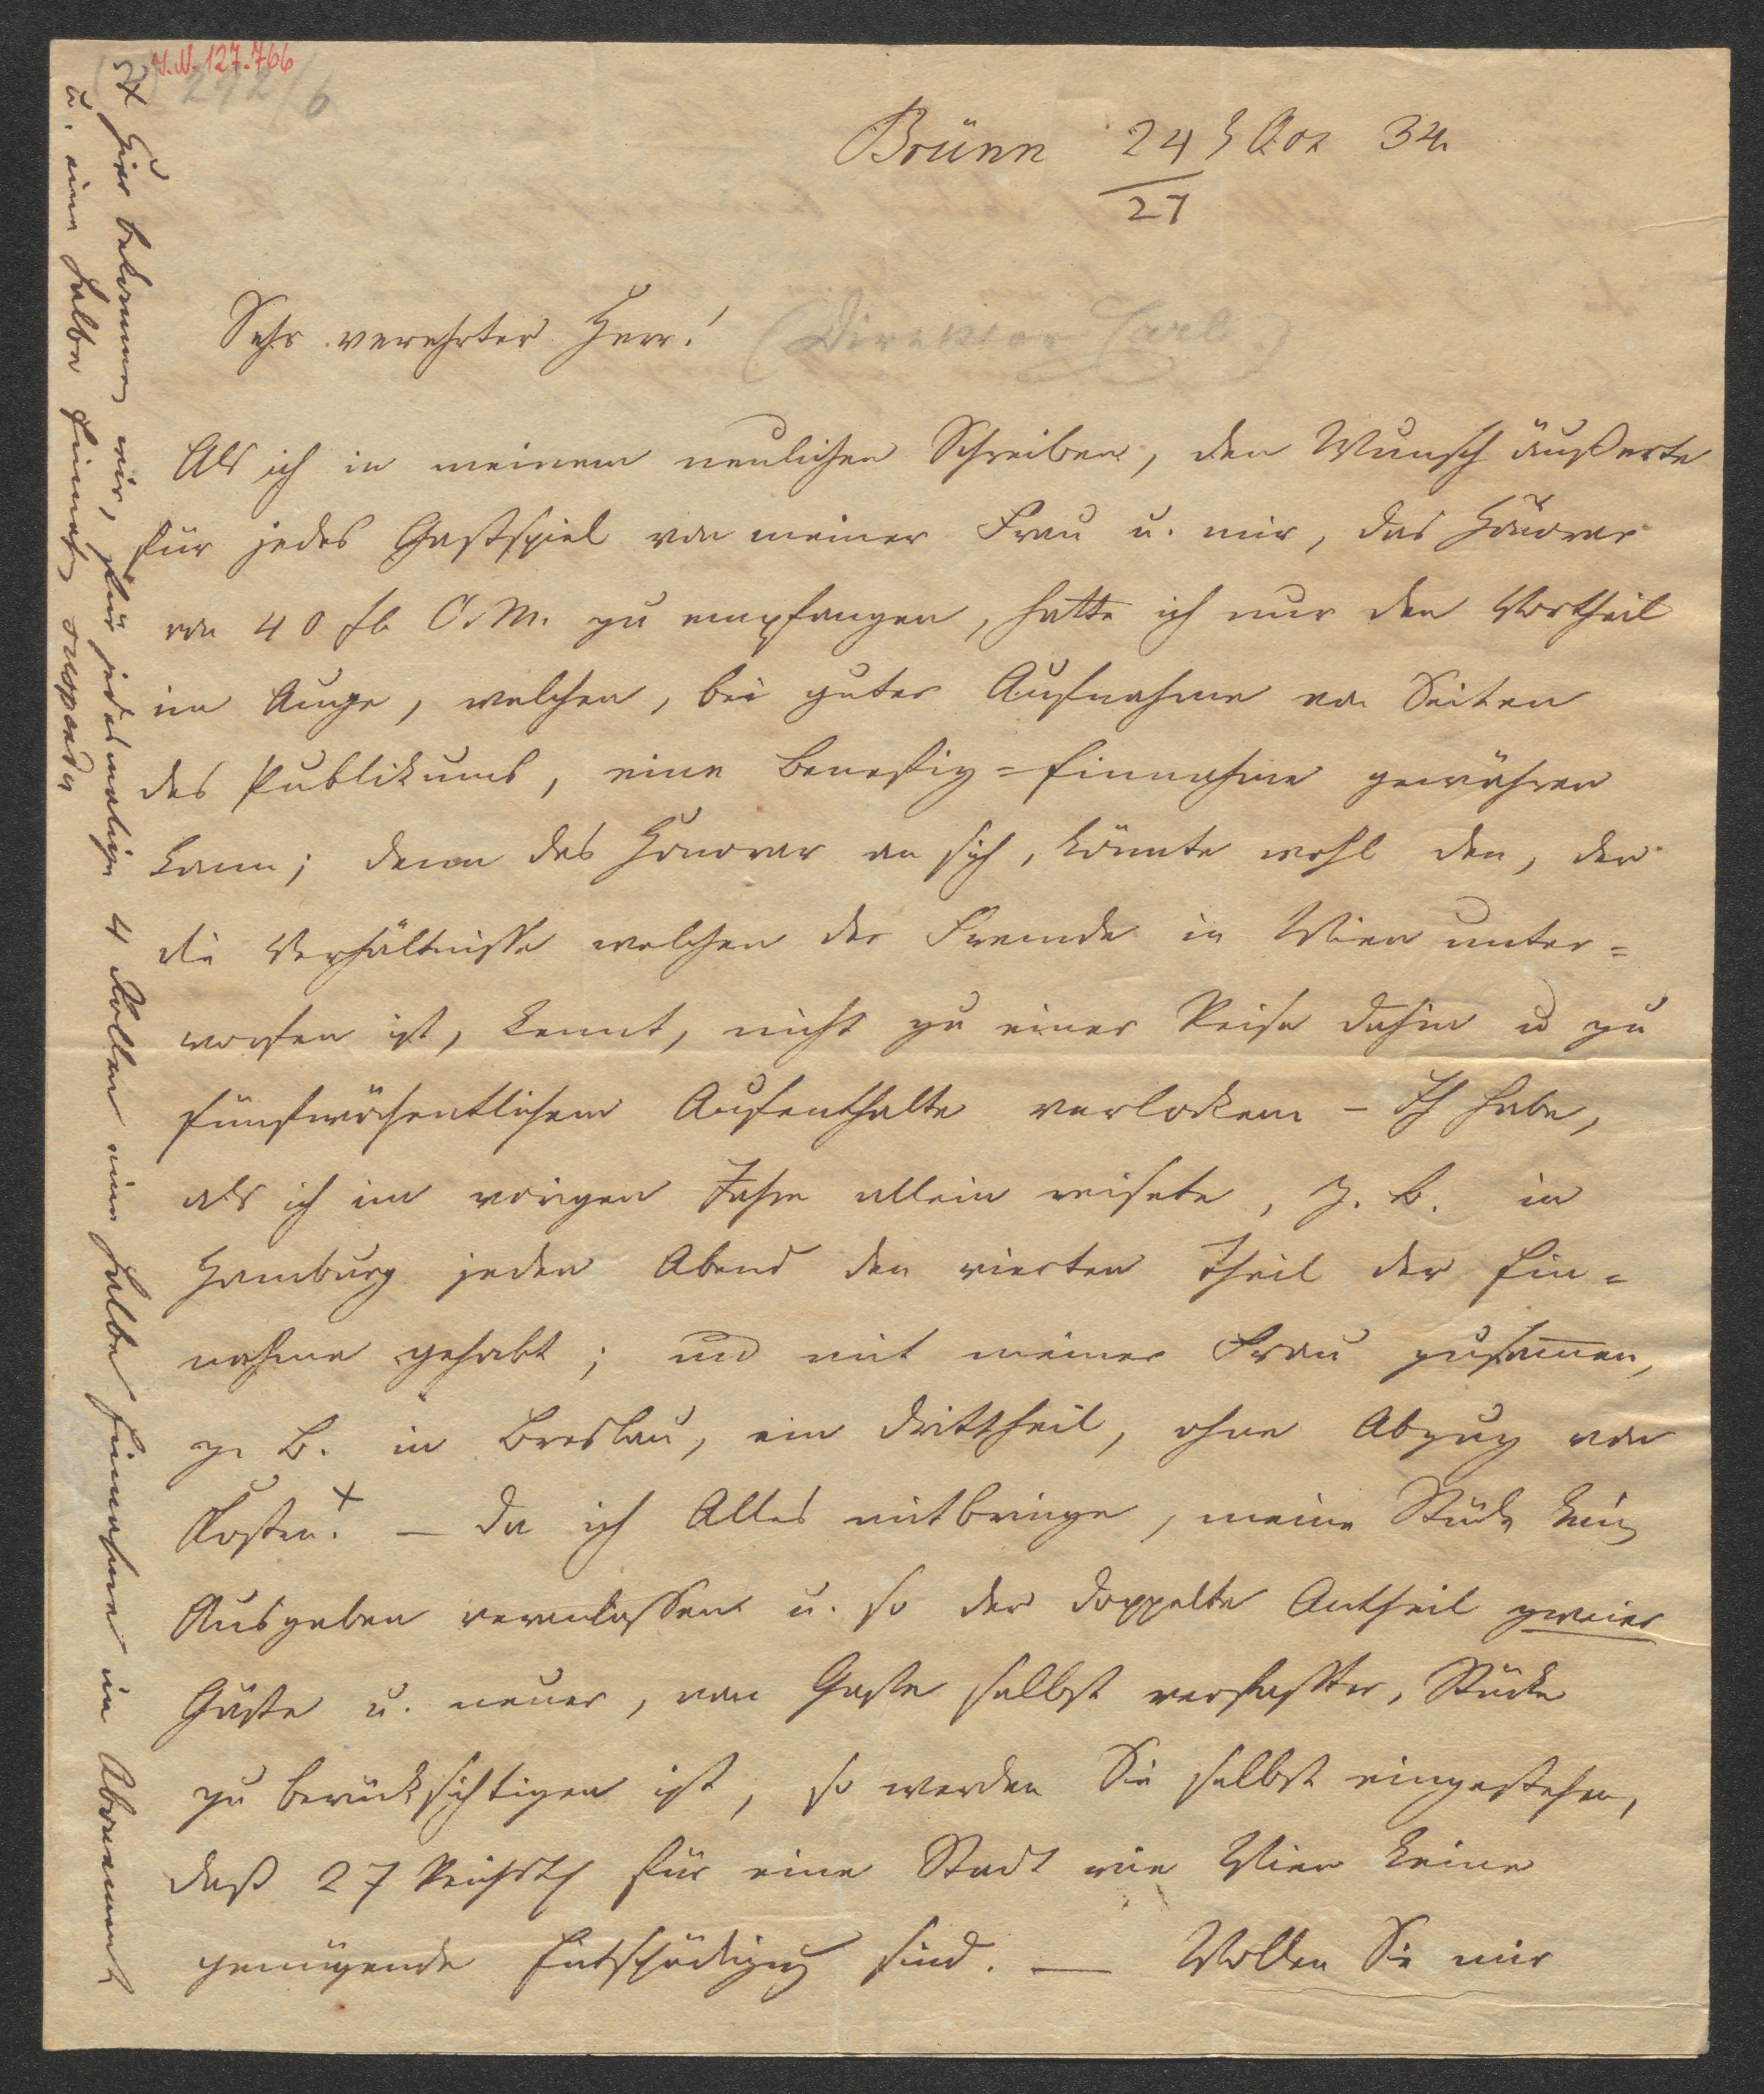 I.N. 127.766
242/6
Brünn 24 34
27
Sehr verehrter Herr!
(Direktor Carl.)
Als ich in meinem neulichen Schreiben, den Wunsch äußerte
für jedes Gastspiel von meiner Frau u. mir, das Honorar
von 40 fl. C. M. zu empfangen, hatte ich nur den Vortheil
im Auge, welchen, bei guter Aufnahme von Seiten
des Publikums, eine Benefiz=Einnahme gewähren
kann; denn das Honorar an sich, könnte wohl den, der
die Verhältnisse welchen der Fremde in Wien unter=
worfen ist, kennt, nicht zu einer Reise dahin u zu
fünfwöchentlichem Aufenthalte verlocken – Ich habe,
als ich im vorigen Jahre allein reisete, z. B. in
Hamburg jeden Abend den vierten Theil der Ein=
nahme gehabt; und mit meiner Frau zusammen,
z. B. in Breslau, ein Drittheil, ohne Abzug von
Kosten. + — Da ich Alles mitbringe, meine Stücke keine
Ausgaben veranlassen u. so der doppelte Antheil zweier
Gäste u. neuer, vom Gaste selbst verfaßter, Stücke
zu berücksichtigen ist, so werden Sie selbst eingestehen,
daß 27 Reichsth für eine Stadt wie Wien keine
genügende Entschädigung sind. — Wollen Sie mir
+ Hier bekommen wir, für jedesmalige 4 Rollen eine halbe Einnahme im Abonnement
u. eine halbe Einnahme suspendu